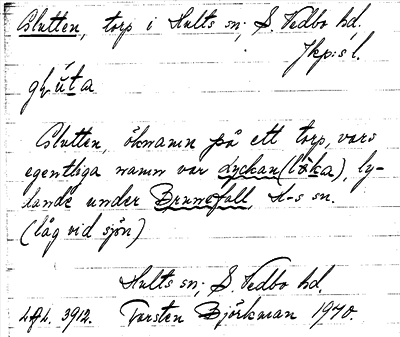 Glutten, torp i Hults sn; S. Vedbo hd,
Jkp:s l.
glúta
Glutten, öknamn på ett torp, vars
egentliga namn var Lyckan (løka), ly-
dande under Brunefall, H-s sn.
(låg vid sjön)
Hults sn; S Vedbo hd.
3912. Torsten Björkman 1940.